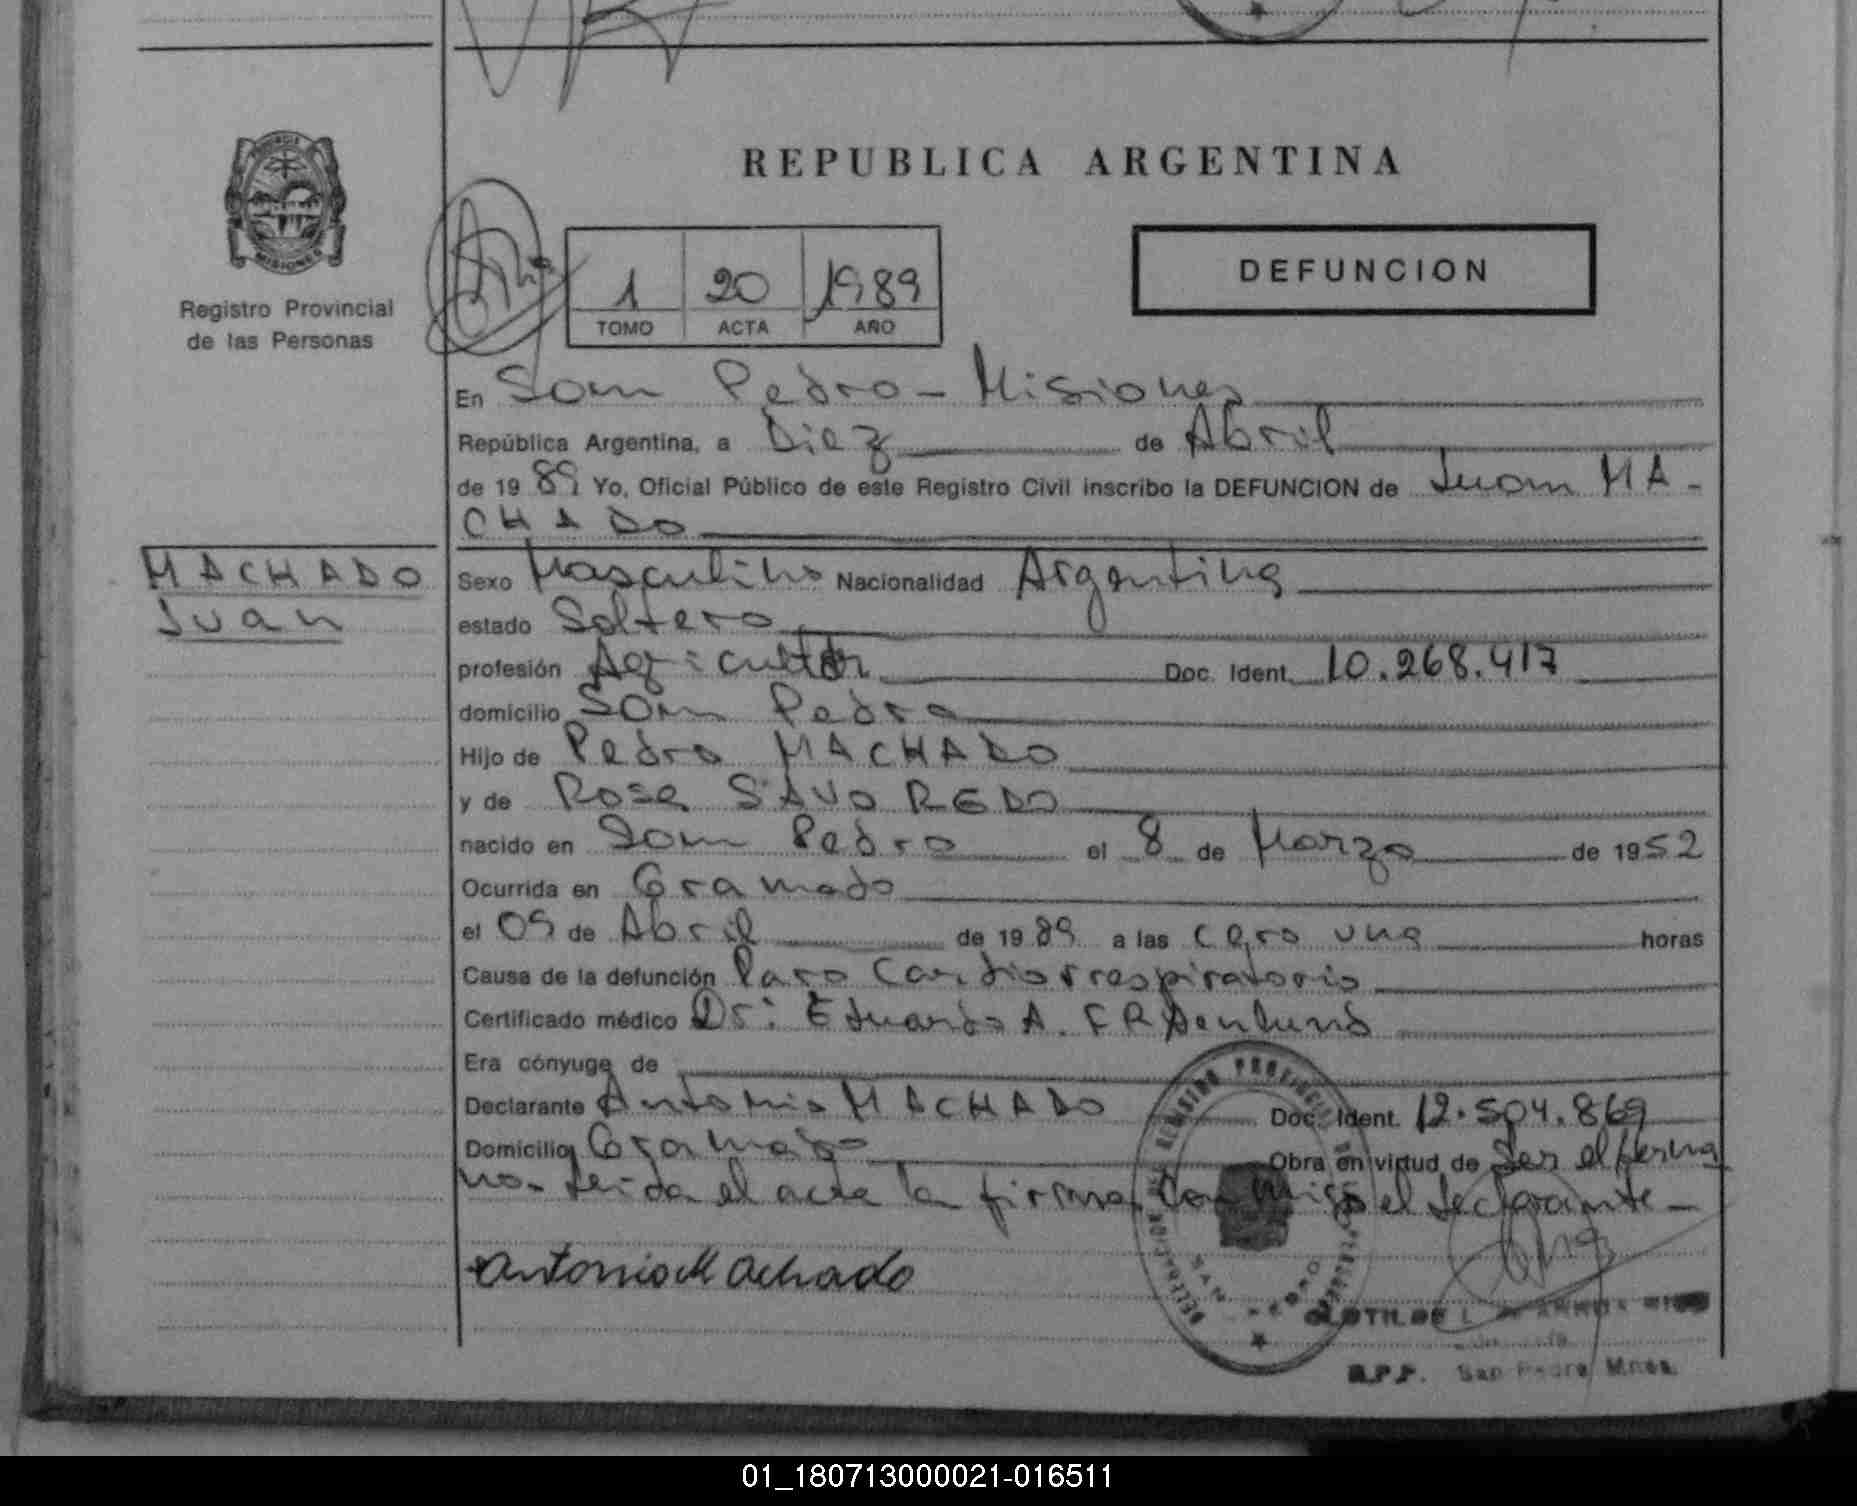 REPUBLICA ARGENTINA
MISIONES
Registro Provincial
de las Personas
1 20 1989
TOMO ACTA AÑO
DEFUNCION
En San Pedro - Misiones
República Argentina, a Diez de Abril
de 1989 Yo, Oficial Público de este Registro Civil inscribo la DEFUNCION de Juan MA-
CHADO
MACHADO
Juan
Sexo Masculino Nacionalidad Argentina
estado Soltero
profesión Agricultor Doc. Ident. 10.268.417
domicilio San Pedro
Hijo de Pedro MACHADO
y de Rosa SAVOREDO
nacido en San Pedro el 8 de Marzo de 1952
Ocurrida en Gramado
el 09 de Abril de 1989 a las cero una horas
Causa de la defunción Paro Cardiorrespiratorio
Certificado médico Dr: Eduardo A.
Era cónyuge de
Declarante Antonio MACHADO Doc. Ident. 12.504.869
Domicilio Gramado Obra en virtud de Ser el herma
no- Leida el acta la firma conmigo el declarante-
Antonio Machado
R.P.P. San Pedro Mnes.
01_180713000021-016511